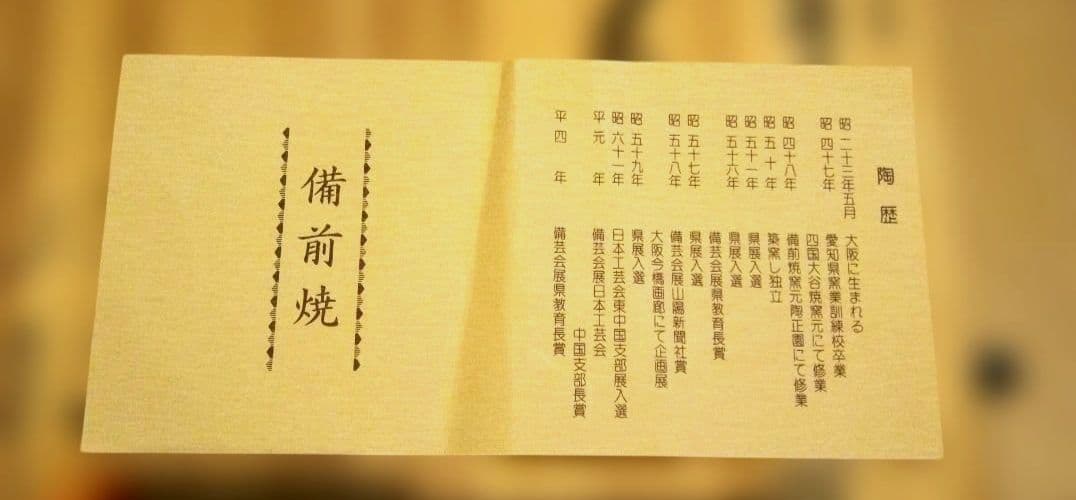 陶歴
昭 二十三年五月 大阪に生まれる
昭 四十七年 愛知県窯業訓練校卒業
四国大谷焼窯元にて修業
昭 四十八年 備前焼窯元陶正園にて修業
昭 五十年 築窯し独立
昭 五十一年 県展入選
昭 五十六年 県展入選
備芸会展県教育長賞
昭 五十七年 県展入選
昭 五十八年 備芸会展山陽新聞社賞
大阪今橋画廊にて企画展
昭 五十九年 県展入選
昭 六十一年 日本工芸会東中国支部展入選
平 元 年 備芸会展日本工芸会
中国支部長賞
平 四 年 備芸会展県教育長賞
備前焼